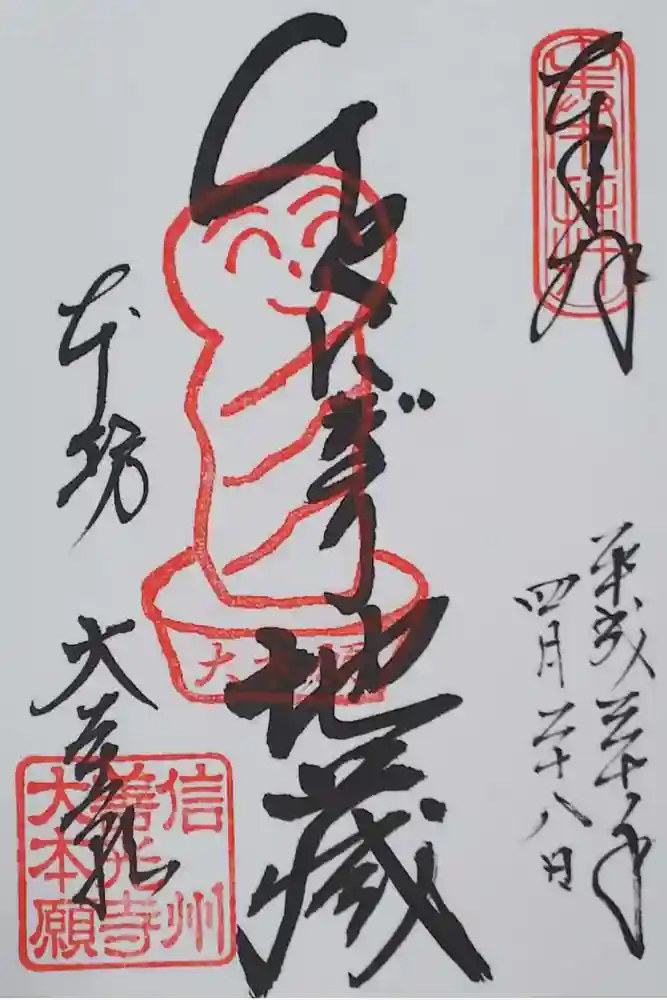 奉拝
平成三十年
四月二十八日
ひとにぎり地蔵
大本願
本坊
大本願
信州
善光寺
大本願